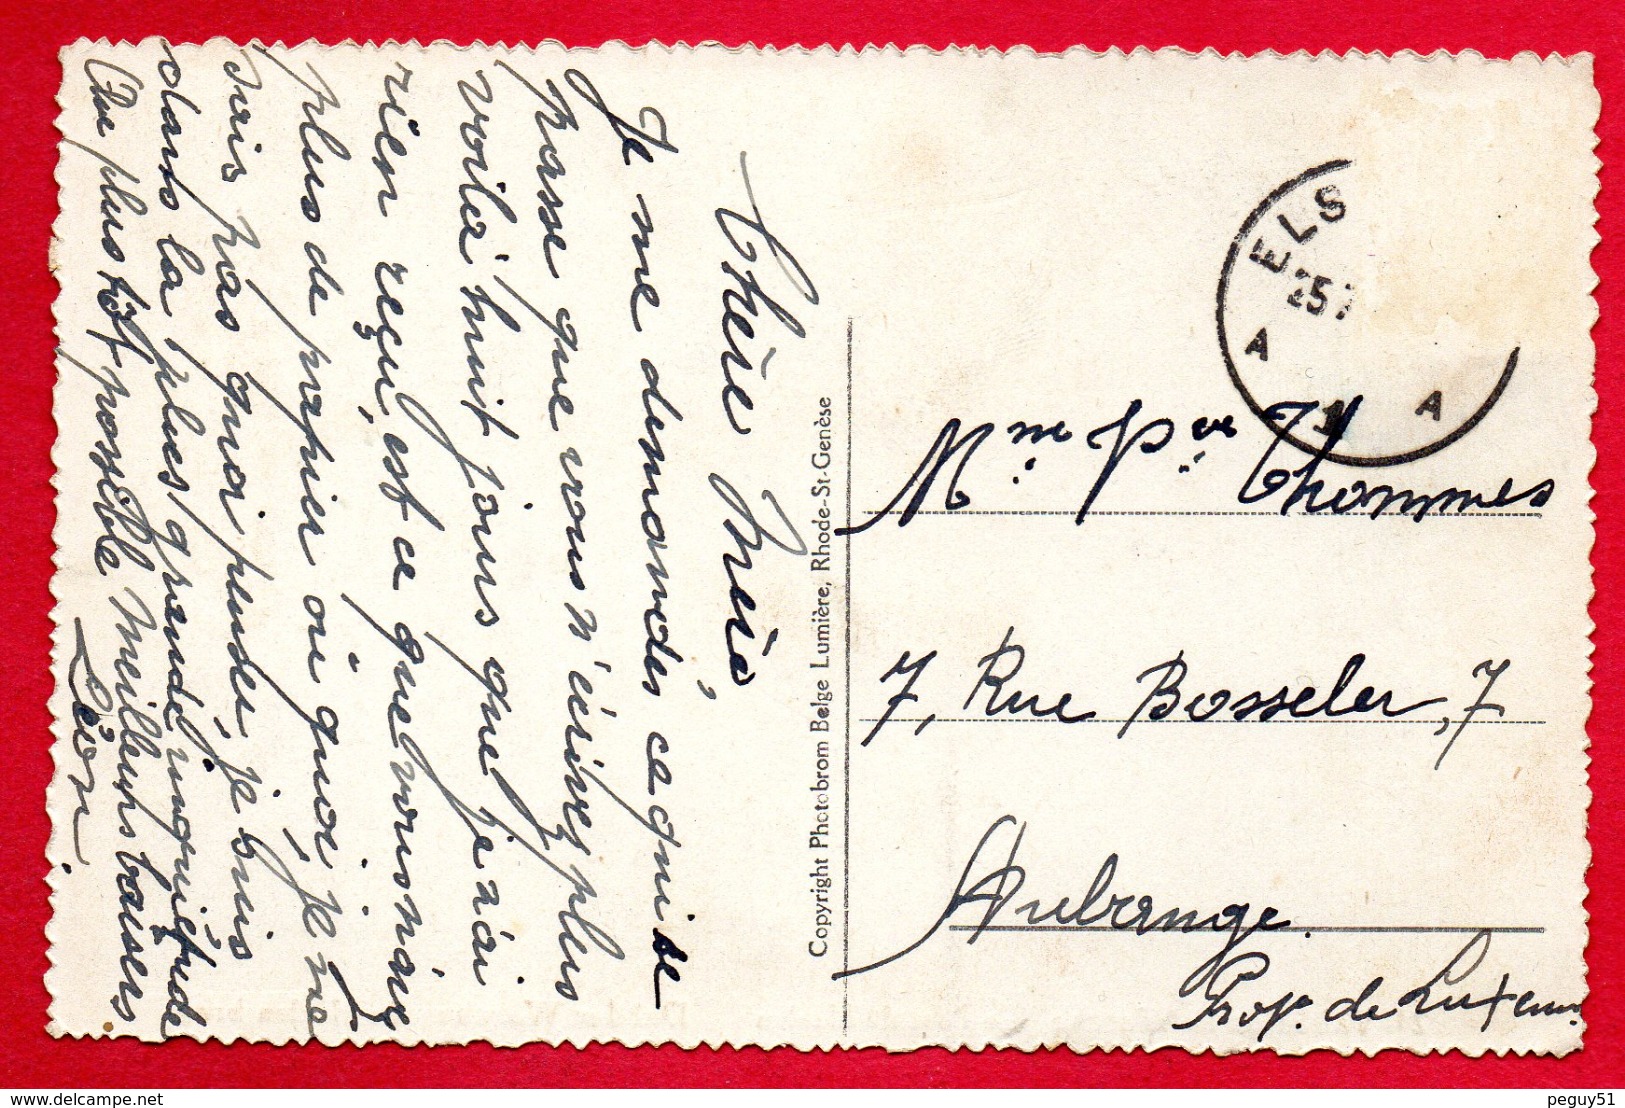 Chère Mria,
Je me demandes ce qui se
passe que vous n'écrivez plus
voilà huit jours que je n'ai
rien reçu, est ce que vous n'avez
plus de papier ou quoi, je ne
sais pas quoi penser, je suis
dans la plus grande inquiétude
Au plus tôt possible Meilleurs baisers
Léon.
Copyright Photobrom Belge Lumière, Rhode-St-Genèse
ELS
25
A 1 A
Mme Vve Thommes
7, Rue Bosseler, 7
Aubange.
Prov. de Luxem.
peguy51
www.delcampe.net